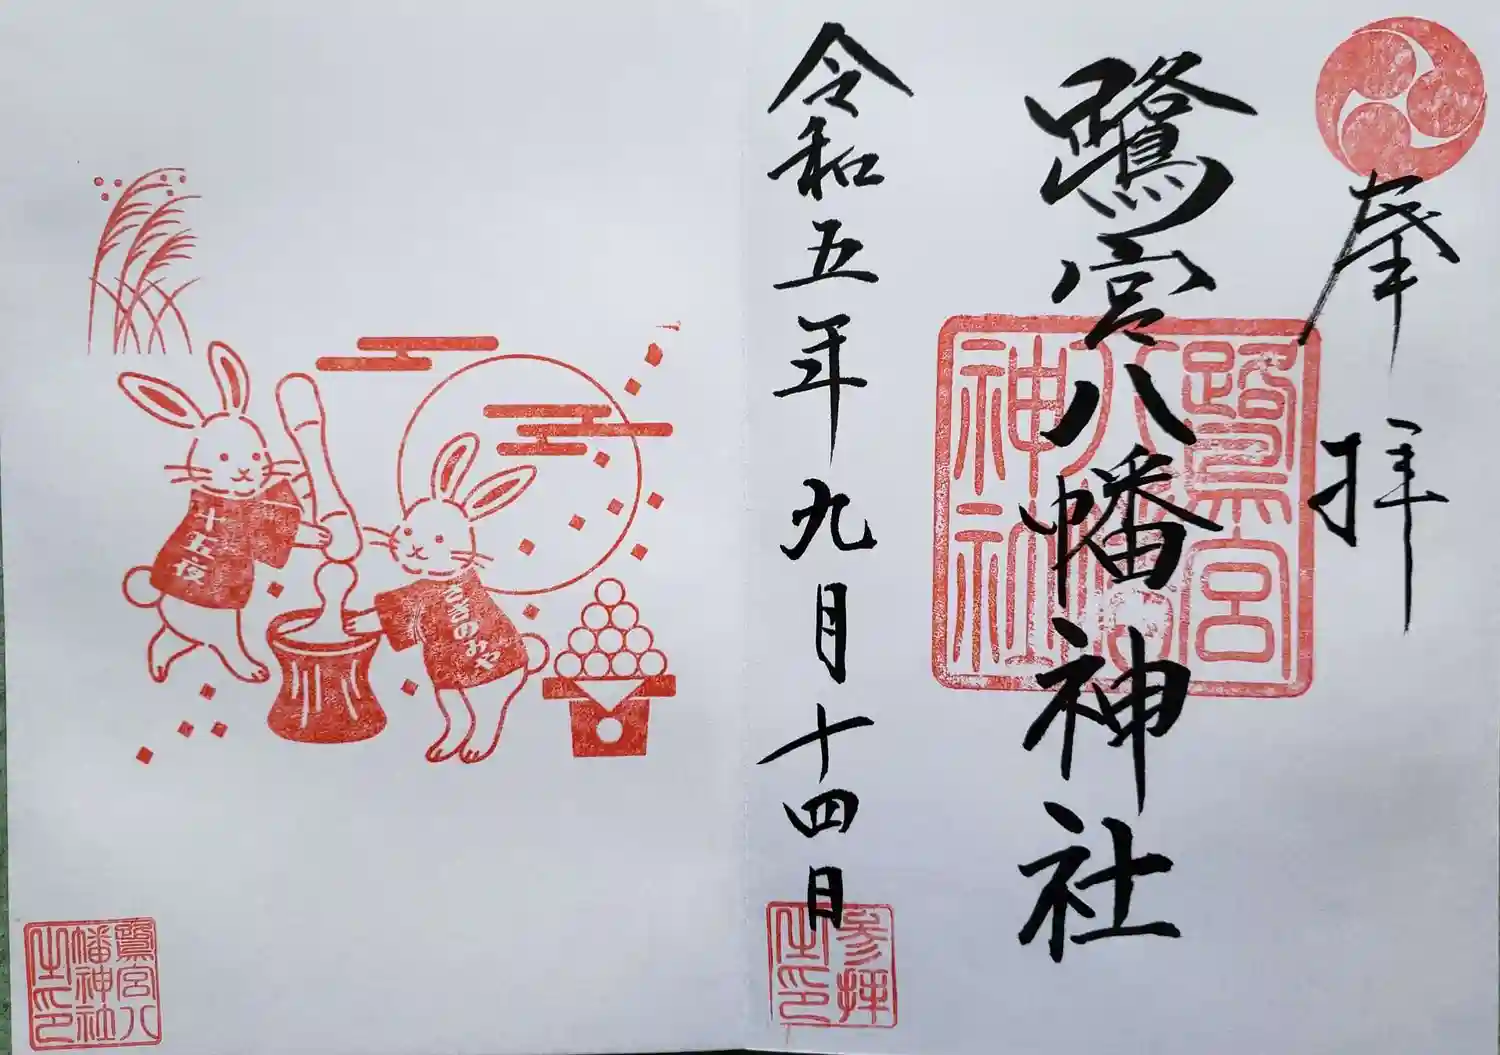 奉拝
鷺宮八幡神社
鷺宮
八幡
神社
令和五年九月十四日
参拝
之印
十五夜
さぎのみや
鷺宮八
幡神社
之印